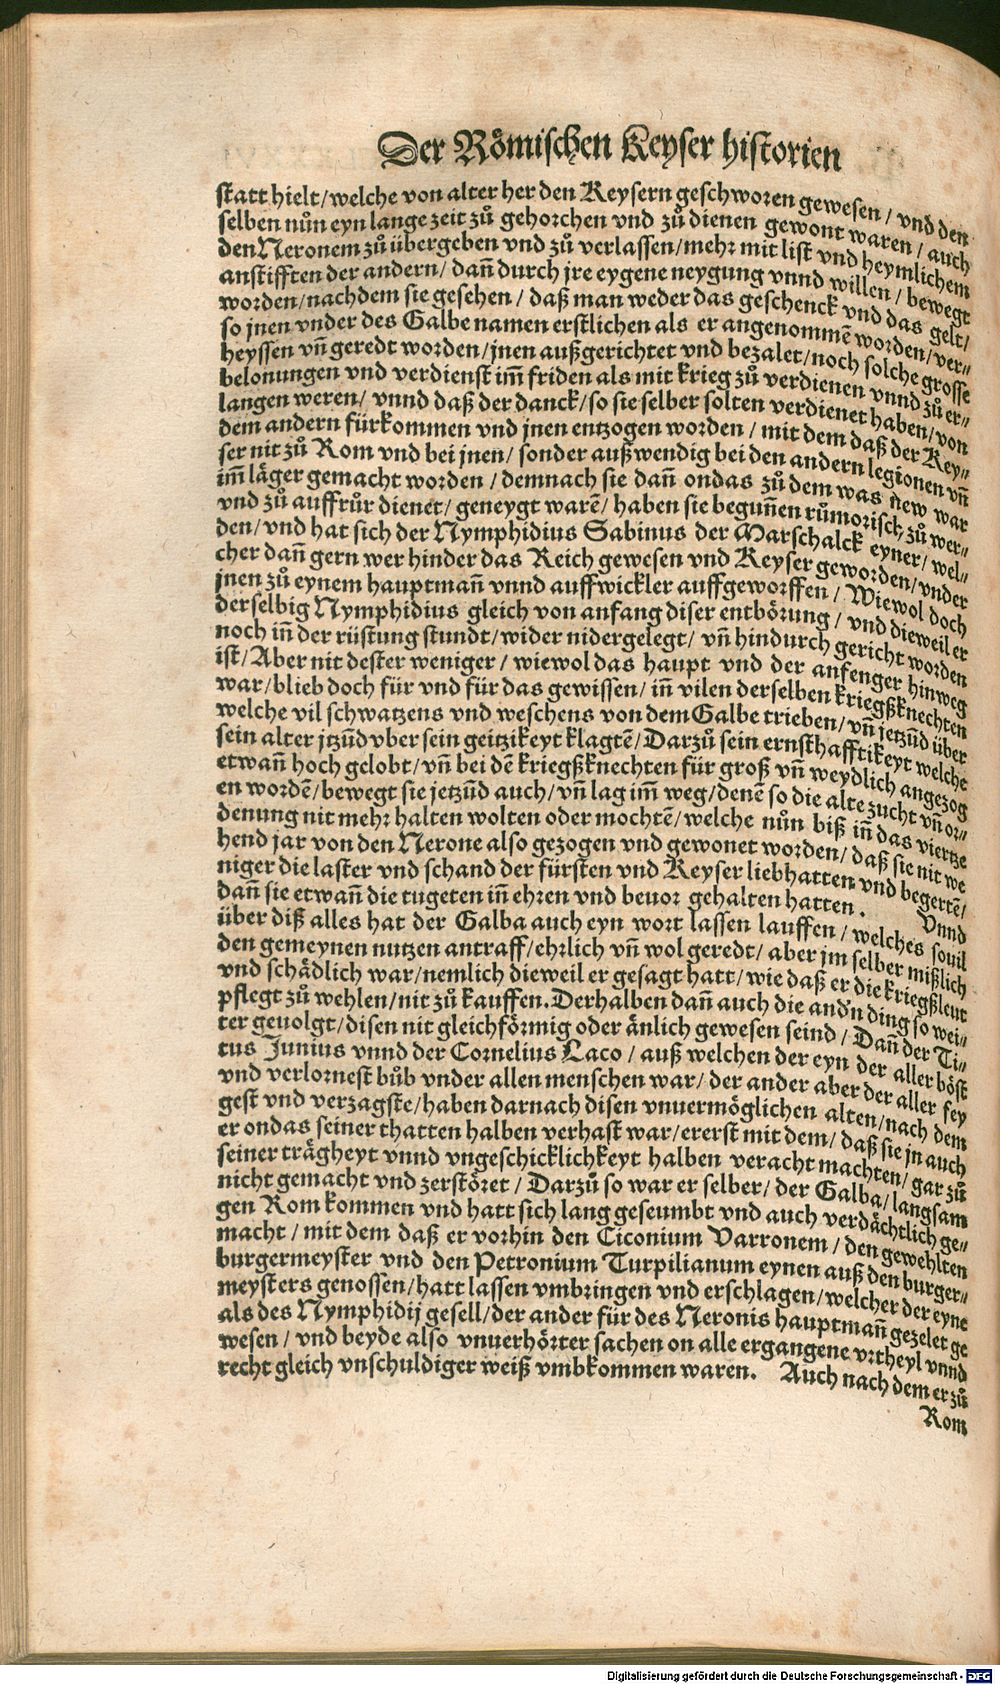 Der Römischen Keyser historien
statt hielt/welche von alter her den Keysern geschworen gewesen/ vnd den
selben nůn eyn lange zeit zů gehorchen vnd zů dienen gewont waren/ auch
den Neronem zů übergeben vnd zů verlassen/mehr mit list vnd heymlichem
anstifften der andern/ dañ durch jre eygene neygung vnnd willen/ bewegt
worden/nachdem sie gesehen/ daß man weder das geschenck vnd das gelt/
so jnen vnder des Galbe namen erstlichen als er angenommẽ worden/ver⸗
heyssen vñ geredt worden/jnen außgerichtet vnd bezalet/noch solche grosse
belonungen vnd verdienst im̃ friden als mit krieg zů verdienen vnnd zů er⸗
langen weren/ vnnd daß der danck/so sie selber solten verdienet haben/von
dem andern fürkommen vnd jnen entzogen worden/ mit dem daß der Key⸗
ser nit zů Rom vnd bei jnen/ sonder außwendig bei den andern legionen vñ
im̃ läger gemacht worden/ demnach sie dañ ondas zů dem was new war
vnd zů auffrůr dienet/ geneygt warẽ/ haben sie beguñen růmorisch zů wer⸗
den/ vnd hat sich der Nymphidius Sabinus der Marschalck eyner/ wel⸗
cher dañ gern wer hinder das Reich gewesen vnd Keyser geworden/vnder
jnen zů eynem hauptmañ vnnd auffwickler auffgeworffen/ Wiewol doch
der selbig Nymphidius gleich von anfang diser entbörung/ vnd dieweil er
noch iñ der rüstung stundt/wider nidergelegt/ vñ hindurch gericht worden
ist/ Aber nit dester weniger/ wiewol das haupt vnd der anfenger hinweg
war/blieb doch für vnd für das gewissen/ iñ vilen derselben kriegßknechten
welche vil schwatzens vnd weschens von dem Galbe trieben/ vñ jetzũd über
sein alter jtzũd vber sein geitzikeyt klagtẽ/ Darzů sein ernsthafftikeyt welche
etwañ hoch gelobt/ vñ bei dẽ kriegßknechten für groß vñ weydlich angezog
en wordẽ/bewegt sie jetzũd auch/ vñ lag im̃ weg/denẽ so die alte zucht vñ or⸗
denung nit mehr halten wolten oder mochtẽ/welche nůn biß iñ das viertze
hend jar von den Nerone also gezogen vnd gewonet worden/ daß sie nit we
niger die laster vnd schand der fürsten vnd Keyser liebhatten vnd begertẽ/
dañ sie etwañ die tugeten iñ ehren vnd beuor gehalten hatten. Vnnd
über diß alles hat der Galba auch eyn wort lassen lauffen/ welches souil
den gemeynen nutzen antraff/ehrlich vñ wol geredt/ aber jm selber mißlich
vnd schädlich war/nemlich dieweil er gesagt hatt/ wie daß er die kriegßleut
pflegt zů wehlen/nit zů kauffen. Derhalben dañ auch die and'n ding so wei⸗
ter geuolgt/disen nit gleichförmig oder änlich gewesen seind/ Dañ der Ti⸗
tus Junius vnnd der Cornelius Laco/ auß welchen der eyn der aller böst
vnd verlornest bůb vnder allen menschen war/ der ander aber der aller fey
gest vnd verzagste/haben darnach disen vnuermöglichen alten/nach dem
er ondas seiner thatten halben verhast war/ererst mit dem/ daß sie jn auch
seiner trägheyt vnnd vngeschicklichkeyt halben veracht machten/ gar zů
nicht gemacht vnd zerstöret/ Darzů so war er selber/ der Galba/ langsam
gen Rom kommen vnd hatt sich lang geseumbt vnd auch verdächtlich ge⸗
macht/ mit dem daß er vorhin den Ciconium Varronem/ den gewehlten
burgermeyster vnd den Petronium Turpilianum eynen auß den burger⸗
meysters genossen/hatt lassen vmbringen vnd erschlagen/welcher der eyne
als des Nymphidij gesell/der ander für des Neronis hauptmañ gezelet ge
wesen/ vnd beyde also vnuerhörter sachen on alle ergangene vrtheyl vnnd
recht gleich vnschuldiger weiß vmbkommen waren. Auch nach dem er zů
Rom
Digitalisierung gefördert durch die Deutsche Forschungsgemeinschaft - DFG